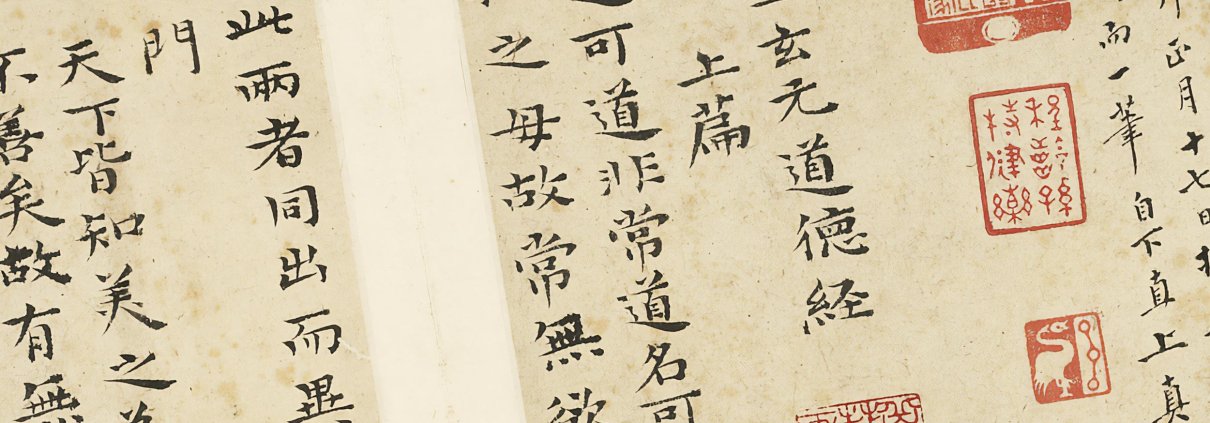 正月十七日
而一筆自真上真
玄元道徳経
上篇
可道非常道名可
之母故常無欲
此兩者同出而異
門
天下皆知美之
不善矣故有無